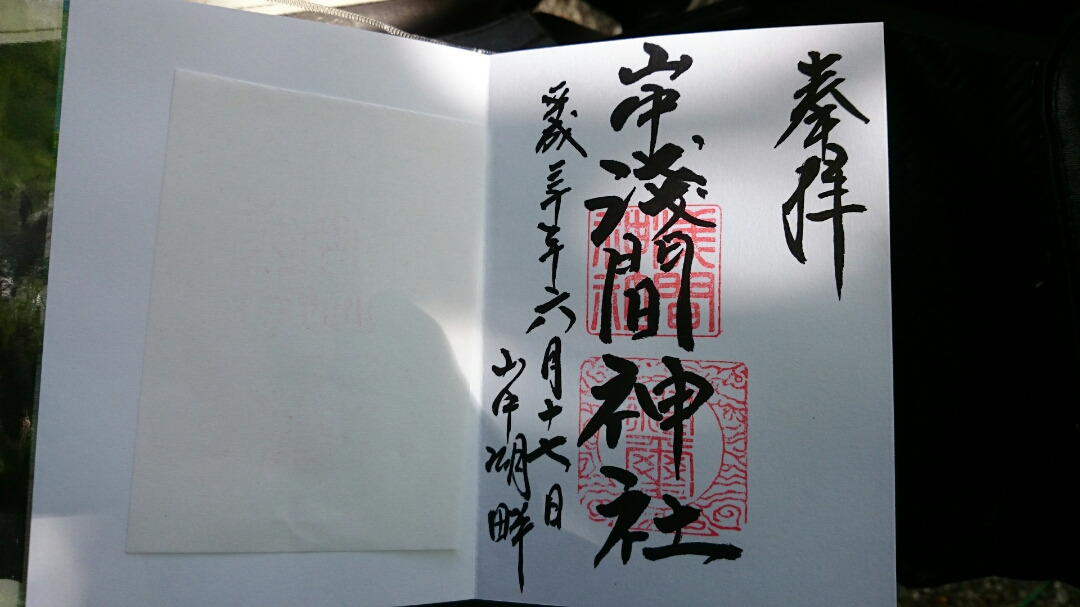 奉拝
山中淺間神社
平成三十年六月十七日
山中湖畔